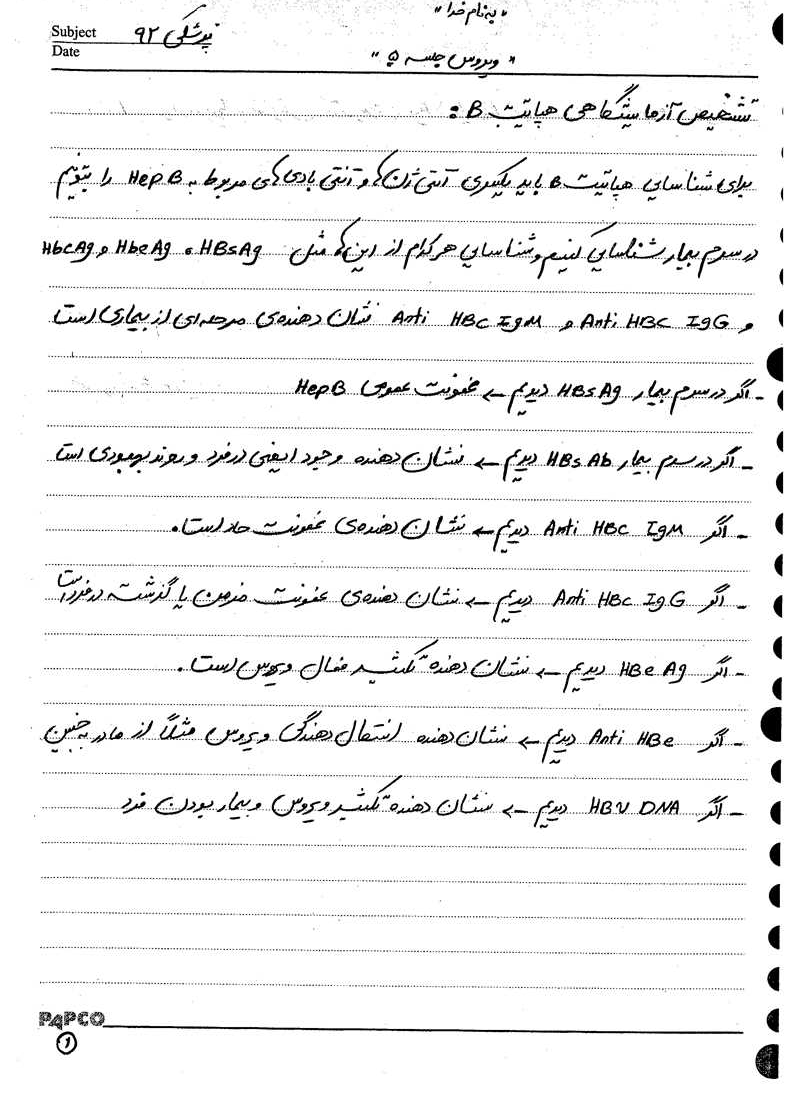 "به نام خدا"
Subject پزشکی ۹۲
Date
"ویروس جلسه ۵"
تشخیص آزمایشگاهی هپاتیت B :
برای شناسایی هپاتیت B باید یکسری آنتی ژن ها و آنتی بادی های مربوط به Hep B را بتونیم
در سرم بیمار شناسایی کنیم و شناسایی هر کدام از این ها مثل HBsAg ، HbeAg و HbcAg
و Anti HBC IgG و Anti HBc IgM نشان دهنده ی مرحله ای از بیماری است
- اگر در سرم بیمار HBsAg دیدیم ← عفونت عمومی HepB
- اگر در سرم بیمار HBsAb دیدیم ← نشان دهنده وجود ایمنی در فرد و روند بهبودی است
- اگر Anti HBc IgM دیدیم ← نشان دهنده ی عفونت حاد است.
- اگر Anti HBc IgG دیدیم ← نشان دهنده ی عفونت مزمن یا گذشته در فرد است
- اگر HBeAg دیدیم ← نشان دهنده تکثیر فعال ویروس است.
- اگر Anti HBe دیدیم ← نشان دهنده انتقال دهندگی ویروس مثلاً از مادر به جنین
- اگر HBV DNA دیدیم ← نشان دهنده تکثیر ویروس و بیمار بودن فرد
PAPCO
۱